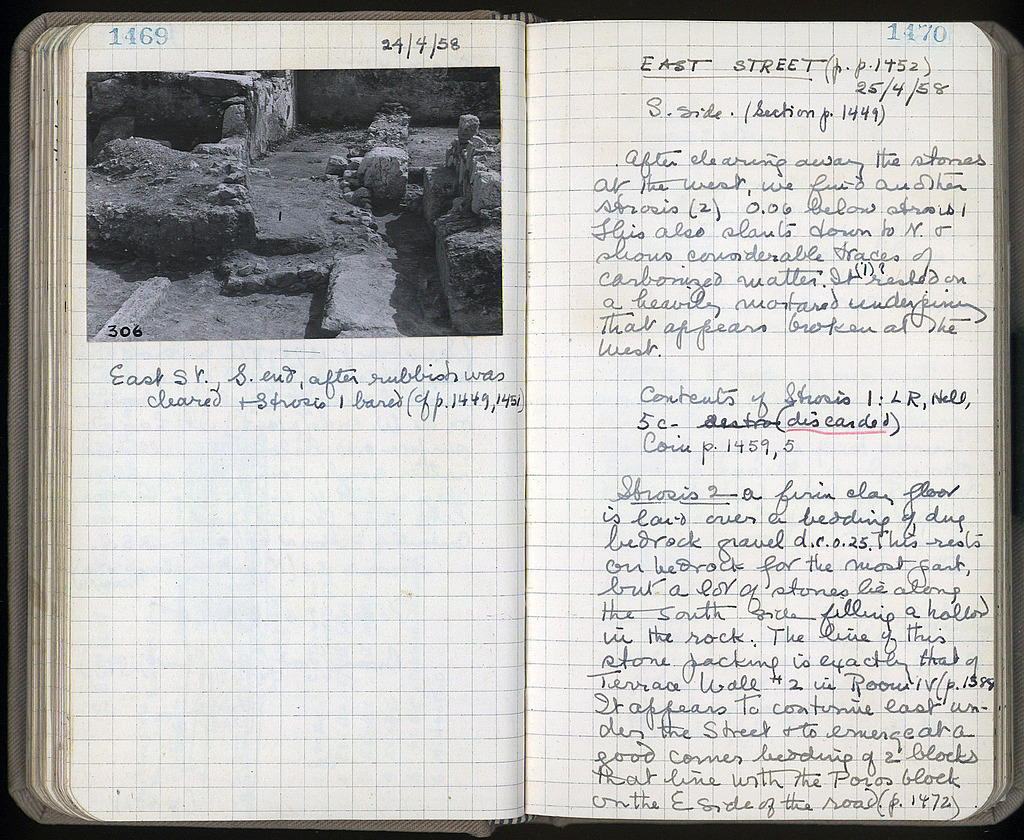 1469
24/4/58
306
East St., S. end, after rubbish was
cleared + Strosis 1 bared (cf p. 1449, 1451)
1470
EAST STREET (p. p. 1452)
25/4/58
S. side. (Section p. 1449)
After clearing away the stones
at the west, we find another
strosis (2) 0.06 below strosis 1
This also slants down to N. &
shows considerable traces of
carbonized matter. It (1)? rested on
a heavily mortared underpining
that appears broken at the
West.
Contents of Strosis 1: LR, Hell,
5c - (discarded)
Coin p. 1459, 5
Strosis 2 - a firm clay floor
is laid over a bedding of dug
bedrock gravel d. c. 0.25. This rests
on bedrock for the most part,
but a lot of stones lie along
the south side filling a hollow
in the rock. The line of this
stone packing is exactly that of
Terrace Wall #2 in Room IV (p.
It appears to continue east un-
der the Street + to emerge at a
good corner bedding of 2 blocks
that line with the Poros block
on the E side of the road. (p. 1472)